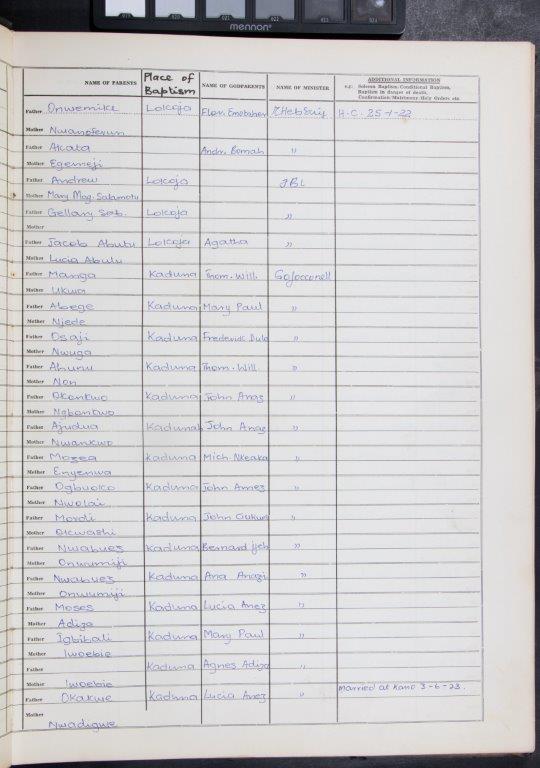 mennon
NAME OF PARENTS Place of Baptism NAME OF GODPARENTS NAME OF MINISTER ADDITIONAL INFORMATION
e.g. Solemn Baptism: Conditional Baptism,
Baptism in danger of death,
Confirmation: Matrimony: Holy Orders etc.
Father Onwemike Lokoja Flor. H.C. 25-1-22
Mother
Father Akata Andr. Bomah "
Mother Egemeji
Father Andrew Lokoja JBL
Mother Mary Mag. Salamotu
Father Gellary Seb. Lokoja "
Mother
Father Jacob Abutu Lokoja Agatha "
Mother Lucia Abulu
Father Manga Kaduna Thom. Will.
Mother Ukwa
Father Abege Kaduna Mary Paul "
Mother Njede
Father Osaji Kaduna Frederick "
Mother Nwuga
Father Ahuru Kaduna Thom. Will. "
Mother Non
Father Okonkwo Kaduna John Anaz "
Mother Ngbonkwo
Father Ajudua Kaduna John Anaz "
Mother Nwankwo
Father Mozea Kaduna Mich. Nkeaka "
Mother Enyenwa
Father Ogbuoko Kaduna John Amez "
Mother Nwolai
Father Mordi Kaduna John "
Mother Okwashi
Father Nwabuez Kaduna Bernard "
Mother Onwumiji
Father Nwabuez Kaduna Ana Anazi "
Mother Onwumiji
Father Moses Kaduna Lucia Anez "
Mother Adiza
Father Igbibali Kaduna Mary Paul "
Mother Iwoebie
Father Kaduna Agnes Adiza "
Mother Iwoebie
Father Okakwe Kaduna Lucia Anez " Married at Kano 3-6-23.
Mother Nwadigwe